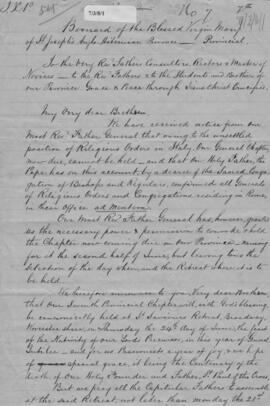 J.X.P.
No 7
Bernard of the Blessed Virgin Mary
of St Joseph's Anglo Hibernian Province — Provincial.
To the Very Revd Fathers Consultors, Rectors & Master of
Novices — to the Revd Fathers & to the Students and Brothers of
our Province Grace & Peace through Jesus Christ Crucified.
My Very dear Brethren,
We have received notice from our
Most Revd Father General that owing to the unsettled
position of Religious Orders in Italy, Our General Chapter
now due, cannot be held — and that Our Holy Father, the
Pope, has on this account, by a decree of the Sacred Congre-
gation of Bishops and Regulars, confirmed all Generals
of Religious Orders and Congregations residing in Rome,
in their Office ad Nutum.
Our Most Revd Father General has, however, granted
us the necessary power & permission to convoke & hold
the Chapter now coming due in Our Province naming
for it the second half of June, but leaving to us the
selection of the day when, and the Retreat where it is
to be held.
We therefore announce to you, Very dear Brethren,
that Our Seventh Provincial Chapter will, with God's blessing,
be canonically held at St Saviour's Retreat, Broadway,
Worcestershire on Thursday the 24th day of June, the feast
of the Nativity of our Lord's Precursor, in this year of Grand
Jubilee — and for us Passionists a year of joy & we hope
of special grace, it being the Centenary of the
death of Our Holy Founder and Father, St Paul of the Cross.
But we pray all the Capitular Fathers to assemble
at the said Retreat, not later than Monday the 21st